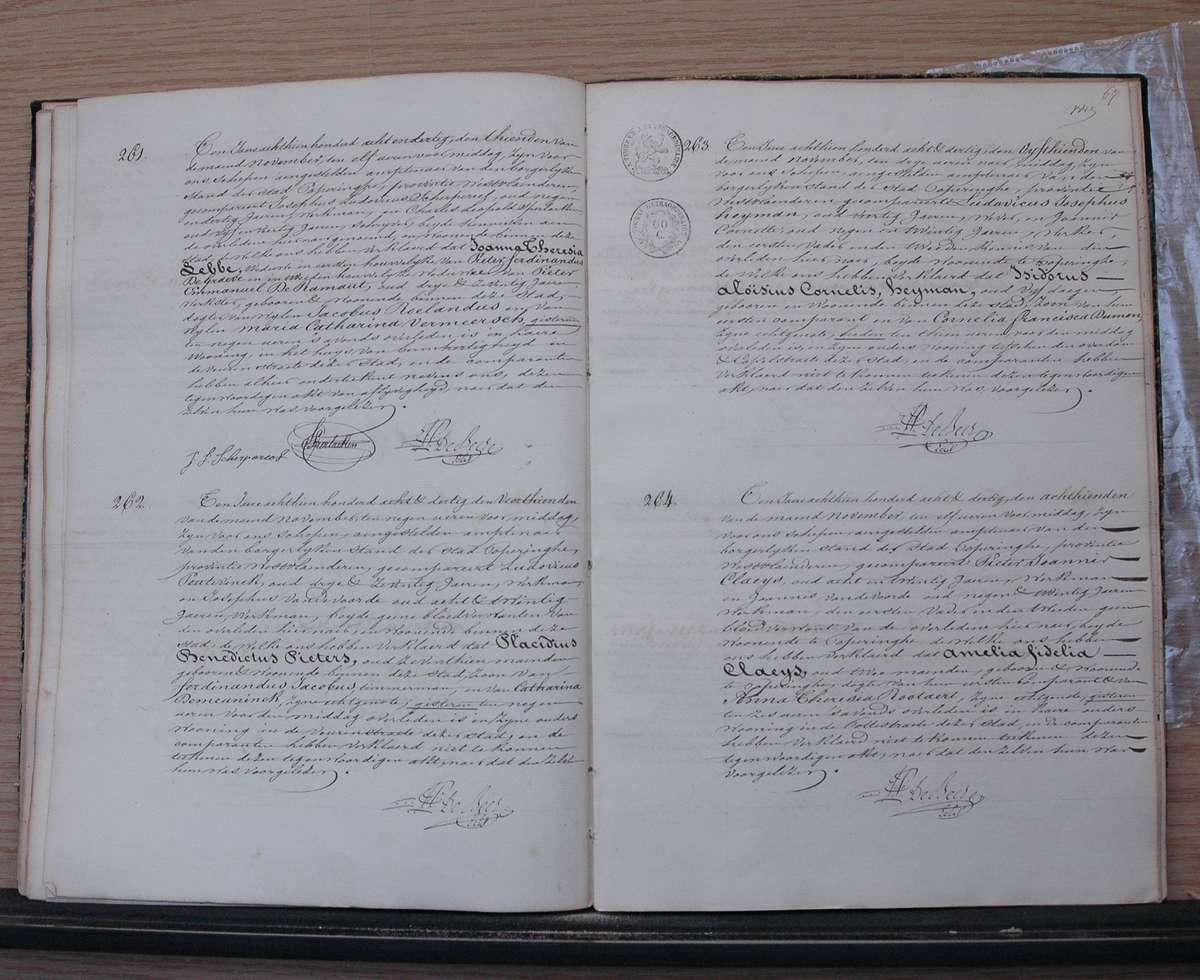 261.
Een Jare achthien honderd acht en dertig, den thienden van
de maend november, ten elf uren voormiddag, Zyn voor
ons schepen aengestelden amptenaer van den borgerlyken
Stand der Stad Poperinghe, provintie Westvlaenderen,
gecompareert Josephus Ludovicus Scherpereel, oud negen
en dertig Jaeren, Werkman, en Charles Leopold
oud vyf en veertig Jaeren, Schryver, beyde bekenden van
de overleden hier naer genoemd, en Woonende binnen deze
Stad, de welke ons hebben verklaerd dat Joanna Theresia
Lebbe, Weduwe in eersten houwelyke van Pieter ferdinandus
De Graeve en in tweeden houwelyke Weduwe van Pieter
Emmanuel De Ramaut, oud drye & Zeventig Jaeren,
gebooren & Woonende binnen deze Stad,
dogter van Wylen Jacobus Roelandus en van
Wylen maria Catharina Vermeersch, gisteren
ten negen uren s'avonds overleden is in haere
Wooning in het
de straete dezer Stad, en de comparanten
hebben alhier onderteekent nevens ons, dezen
tegenwoordigen akt van aflyvigheyd, naer dat den
Zelven hun Was voorgelezen.
J. L. Scherpereel
De Beir
262.
Een Jare achthien honderd acht & dertig, den Veerthienden
van de maand november, ten negen uren voor middag,
Zyn voor ons Schepen, aengestelden ampetnaer
van den borgerlyken Stand der Stad Poperinghe,
provintie Westvlaenderen, gecompareert Ludovicus
oud drye & Zeventig Jaeren, Werkman,
en Josephus Vandevoorde oud acht & twintig
Jaeren, Werkman, beyde gene bloedverwanten van
den overleden hier naer, en Woonende binnen deze
Stad, de Welke ons hebben verklaerd dat Placidius
Benedictus Pieters, oud Zeventhien maenden
gebooren & Woonende binnen deze Stad, Zoon van
ferdinandus Jacobus timmerman, en van Catharina
Demeuninck, Zyne echtgenote, gisteren ten negen
uren voor den middag overleden is in Zyne ouders
Wooning in de veurnstraete dezer Stad, en de
comparanten hebben Verklaerd niet te konnen
teekenen dezen tegenwoordigen akt, naer dat den Zelven
hun Was voorgelezen.
De Beir
67
263.
Een Jare achthien honderd acht & dertig den Vyfthienden van
de maand november, ten drye uren naer middag, Zyn
voor ons Schepen, aengestelden ampetnaer van den
borgerlyken Stand der Stad Poperinghe, provintie
Westvlaenderen gecompareert Ludovicus Josephus
heyman, oud Veertig Jaeren, Wever, en Joannes
Cornette oud negen en twintig Jaeren, Werker,
den eersten Vader en den tweeden Kennis van den
overleden hier naer, beyde Woonende te Poperinghe,
de Welke ons hebben Verklaerd dat Isidorus
Aloisius Cornelis, heyman, oud Vyf dagen,
gebooren en Woonende binnen deze Stad, Zoon van den
eersten comparant en van Cornelia francisca Dumon,
Zyne echtgenote, heden ten thien uren voor den middag
overleden is in Zyne ouders Wooning tusschen de overdam
& Casselstraete dezer Stad, en de comparanten hebben
Verklaerd niet te konnen teekenen dezen tegenwoordigen
akt, naer dat den Zelven hun Was voorgelezen.
De Beir
264.
Een Jare achthien honderd acht & dertig, den achthienden
van de maand November, ten elf uren voormiddag, Zyn
voor ons Schepen, aengestelden ampetnaer van den
borgerlyken Stand der Stad Poperinghe, provintie
Westvlaenderen, gecompareert Pieter Joannes
Claeys, oud acht en twintig Jaeren, Werkman
en Joannes Vandevoorde oud negen & twintig Jaeren
Werkman, den eersten Vader en den tweeden geen
bloedverwant van de overledene hier naer, beyde
Woonende te Poperinghe, de Welke ons hebben
ons hebben Verklaerd dat Amelia fidelia
Claeys, oud twee maanden, gebooren & Woonende
te Poperinghe dogter van den eersten Comparant & van
Anna Theresia Rootaert, Zyne echtgenote, gisteren
ten Zes uren s'avonds overleden is in haere ouders
Wooning in de Pottestraete dezer Stad, en de comparanten
hebben Verklaerd niet te konnen teekenen dezen
tegenwoordigen akt, naer dat den Zelven hun Was
Voorgelezen.
De Beir